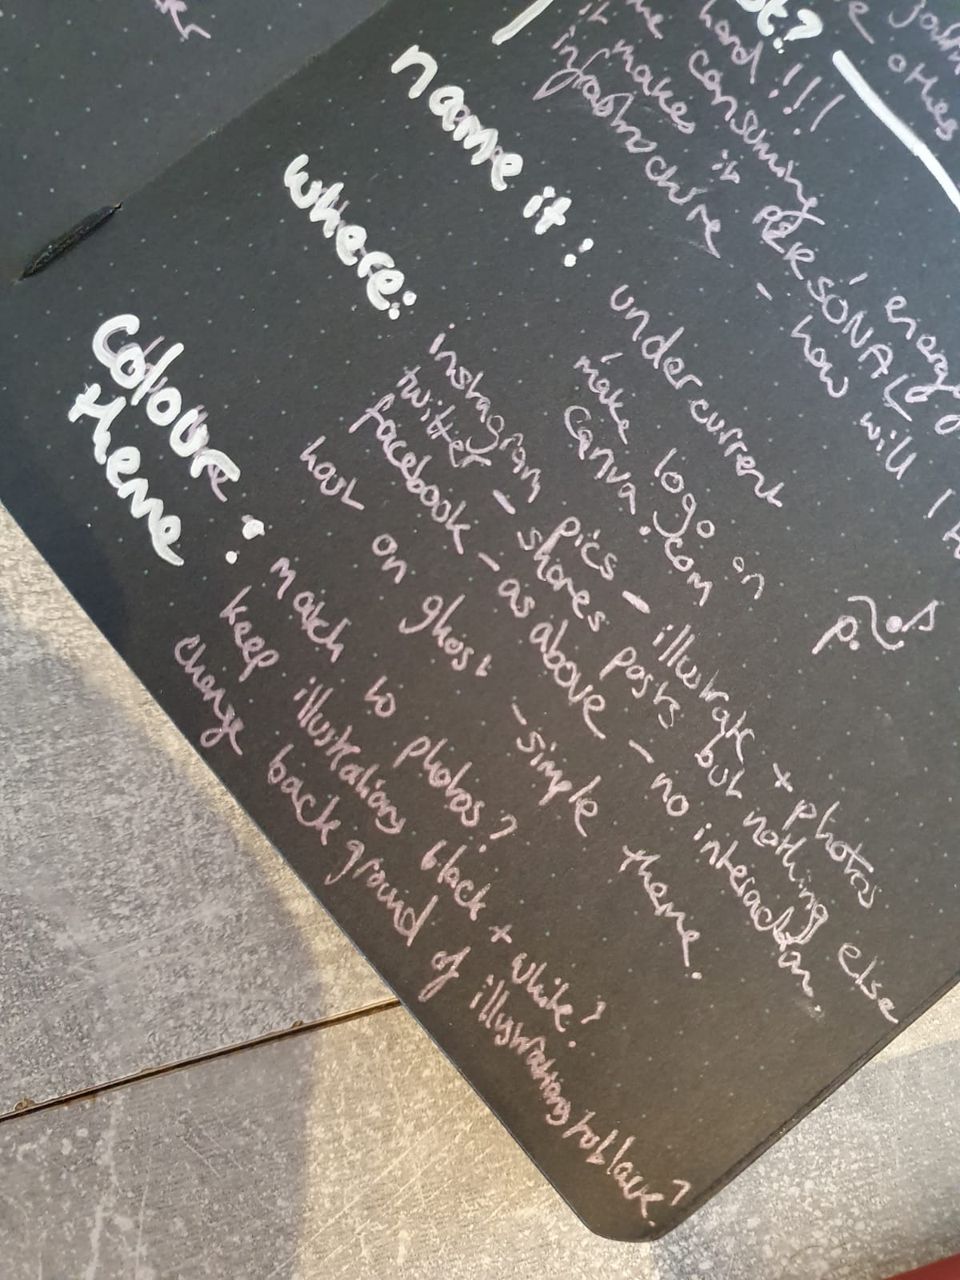 hard!!!
consuming energy
it makes it PERSONAL
infrastructure - how will I
name it:
undercurrent
make logo on
Canva.com
where:
instagram pics - illustrate + photos
twitter - shares posts but nothing else
facebook - as above - no interaction.
host on ghost - simple theme.
colour theme:
match to photos?
keep illustrations black + white?
change background of illustrations to